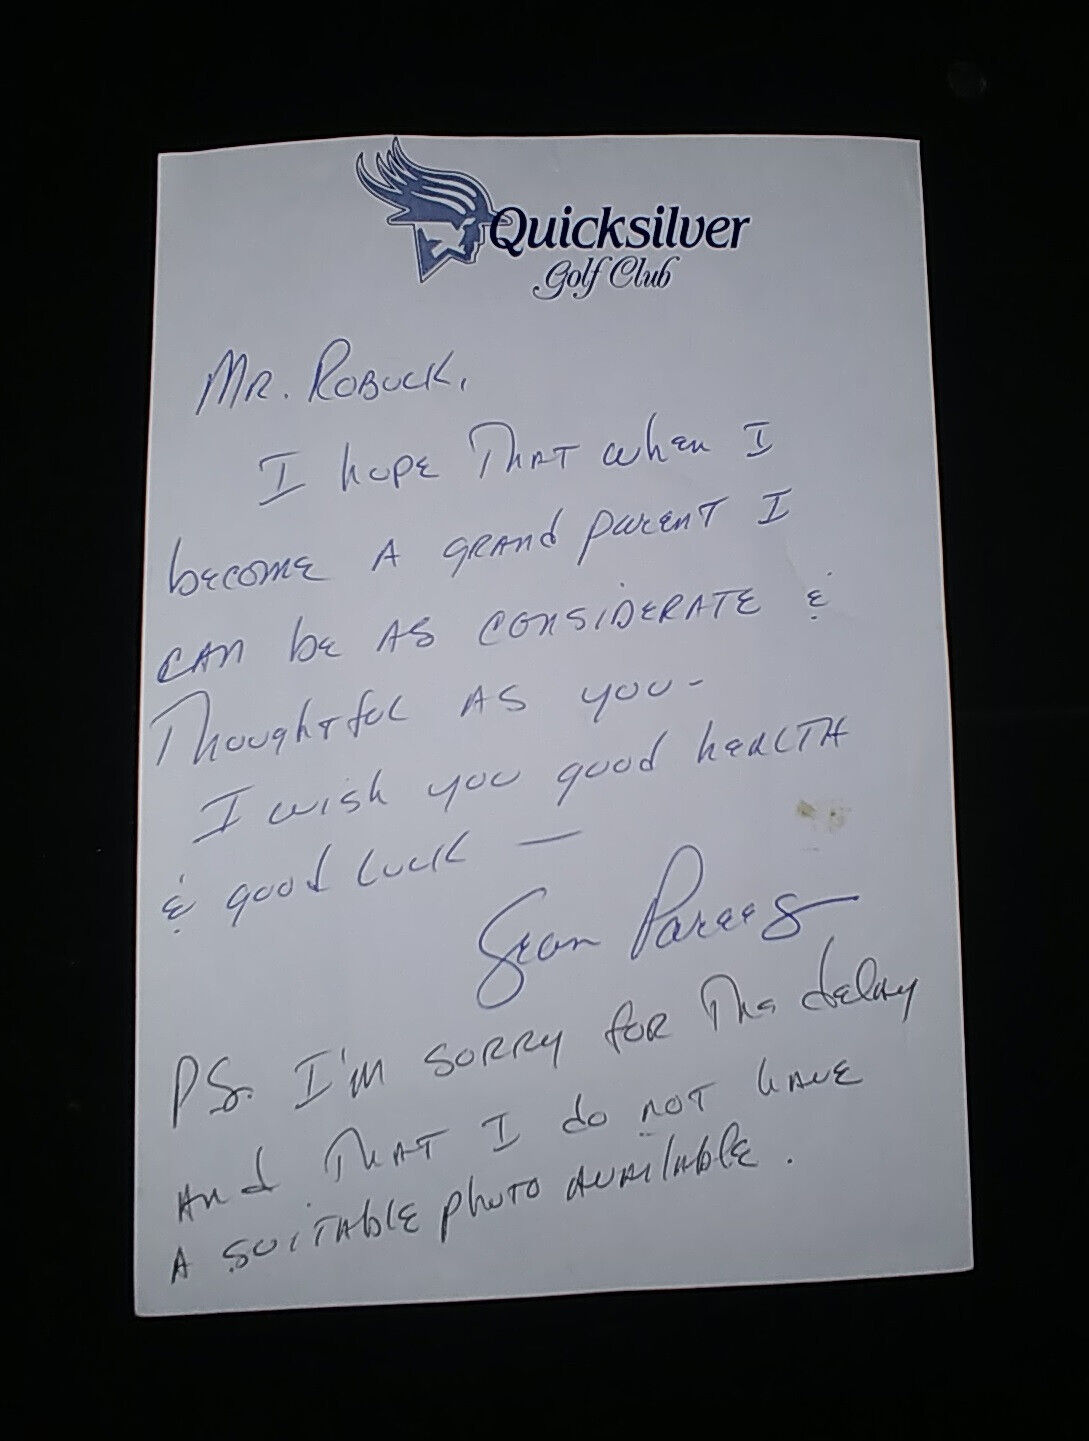 Quicksilver
Golf Club
MR. ROBUCK,
I hope THAT when I
become A GRAnd parenT I
CAN be AS CONSIDERATE &
ThoughTful AS you-
I wish you good heALTH
& good luck —
Sean
PS. I'm SORRY for The delay
And THAT I do NOT have
A SUITAblE photo AVAilAblE.